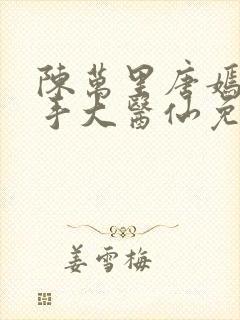 陳萬里唐嫣
手大醫仙免
姜雪梅